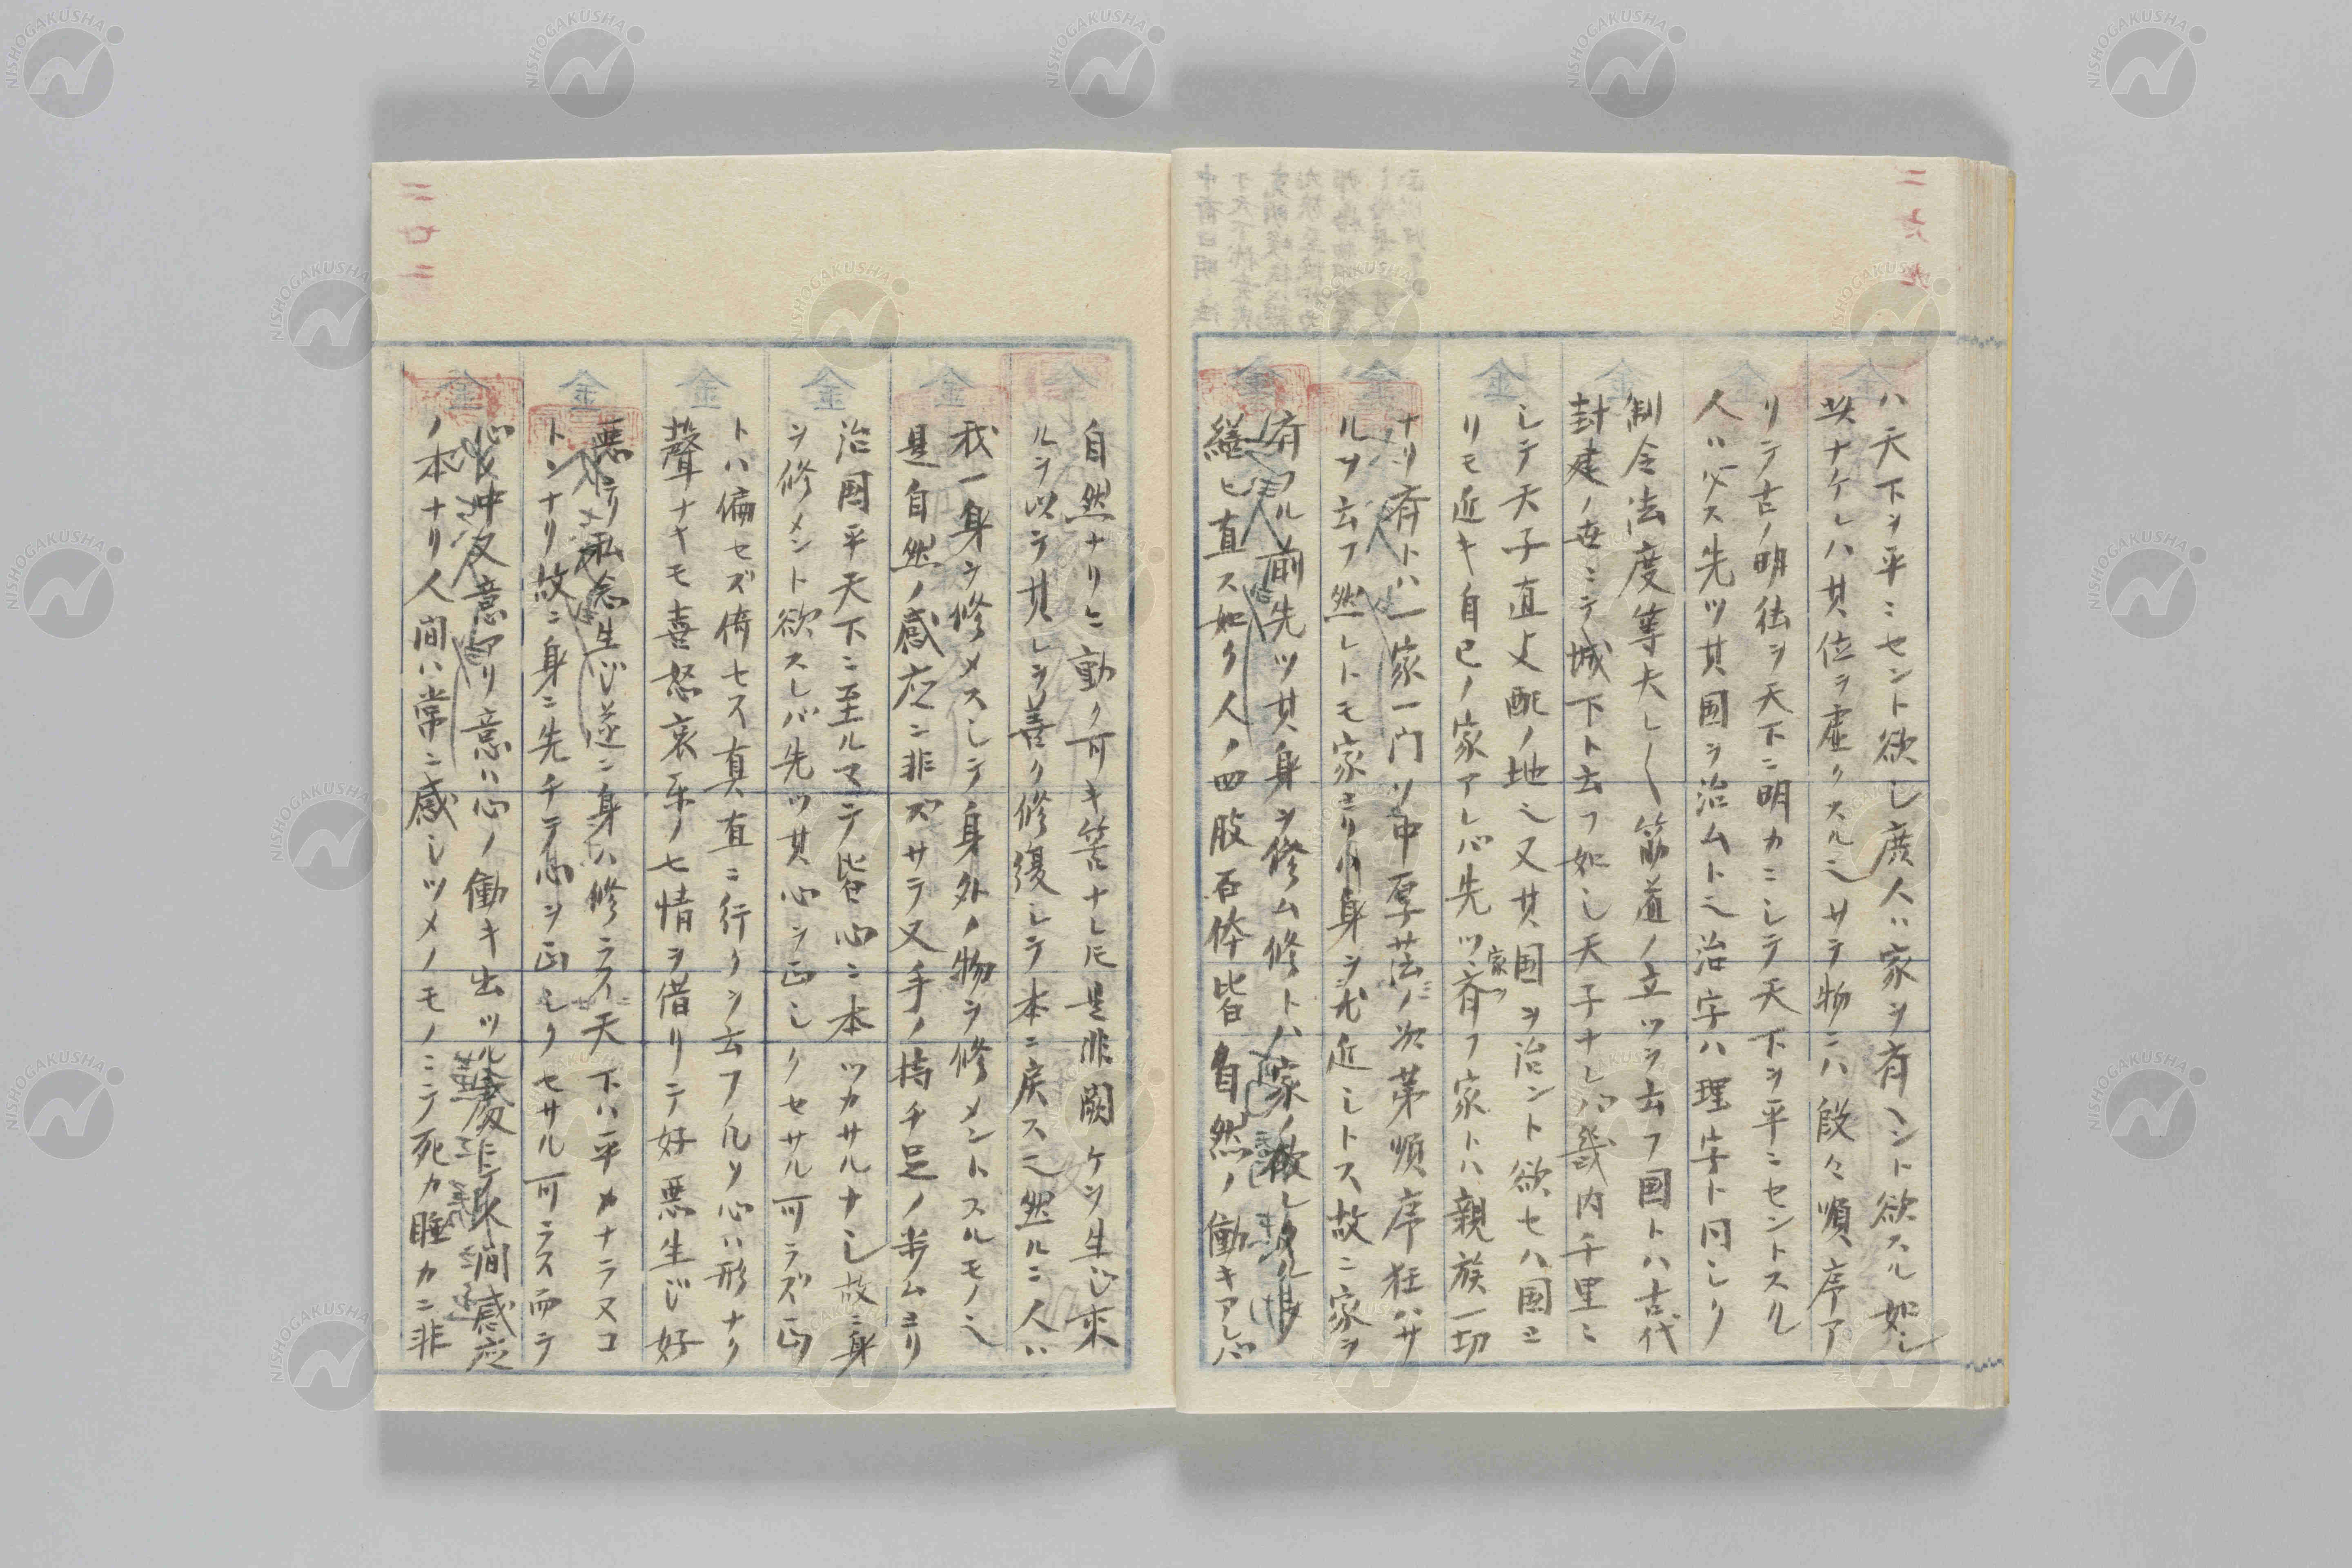 二六九
ハ天下ヲ平ニセント欲し庶人ハ家ヲ斉ヘント欲スル如し
其ナケレハ其位ヲ虚クスル也サテ物ニハ段々順序ア
リテ古ノ明徳ヲ天下ニ明カニシテ天下ヲ平ニセントスル
人ハ必ス先ツ其国ヲ治ムト也治字ハ理字ト同しク
制令法度等大し〱筋道ノ立ツヲ云フ国トハ古代
封建ノ世ニテ城下ト云フ如し天子ナレハ畿内千里ニ
シテ天子直支配ノ地也又其国ヲ治ント欲セハ国ヨ
リモ近キ自己ノ家アレハ先ツ家ヲ斉フ家トハ親族一切
ナリ斉トハ一家一門ノ中厚薄ノ次第順序狂ハサ
ルヲ云フ然レトモ家ヨリハ身ヲ尤近しトス故ニ家ヲ
斉フル前先ツ其身ヲ修ム修トハ家ノ破レタル
繕ヒ直ス如ク人ノ四股百体皆自然ノ働キアレハ
自然ナリニ動ク可キ筈ナレ𪜈是非闕ケヲ生じ来
ルヲ以テ其レヲ善ク修復シテ本ニ戻ス也然ルニ人ハ
我一身ヲ修メスシテ身外ノ物ヲ修メントスルモノ也
是自然ノ感応ニ非ズサテ又手ノ持チ足ノ歩ムヨリ
治国平天下ニ至ルマテ皆心ニ本ツカサルナし故ニ身
ヲ修メント欲スレバ先ツ其心ヲ正しクセサル可ラズ正
トハ偏セズ倚セス真直ニ行クヲ云フ凡ソ心ハ形ナク
聲ナキモ喜怒哀楽ノ七情ヲ借リテ好悪生じ好
悪ヨリ私念生じ遂ニ身ハ修ラス天下ハ平カナラヌコ
トンナリ故ニ身ニ先チテ心ヲ正しクセサル可ラス而テ
心ハ意アリ意ハ心ノ働キ出ツル感応
ノ本ナリ人間ハ常ニ感しツメノモノニテ死カ睡カニ非
二七二